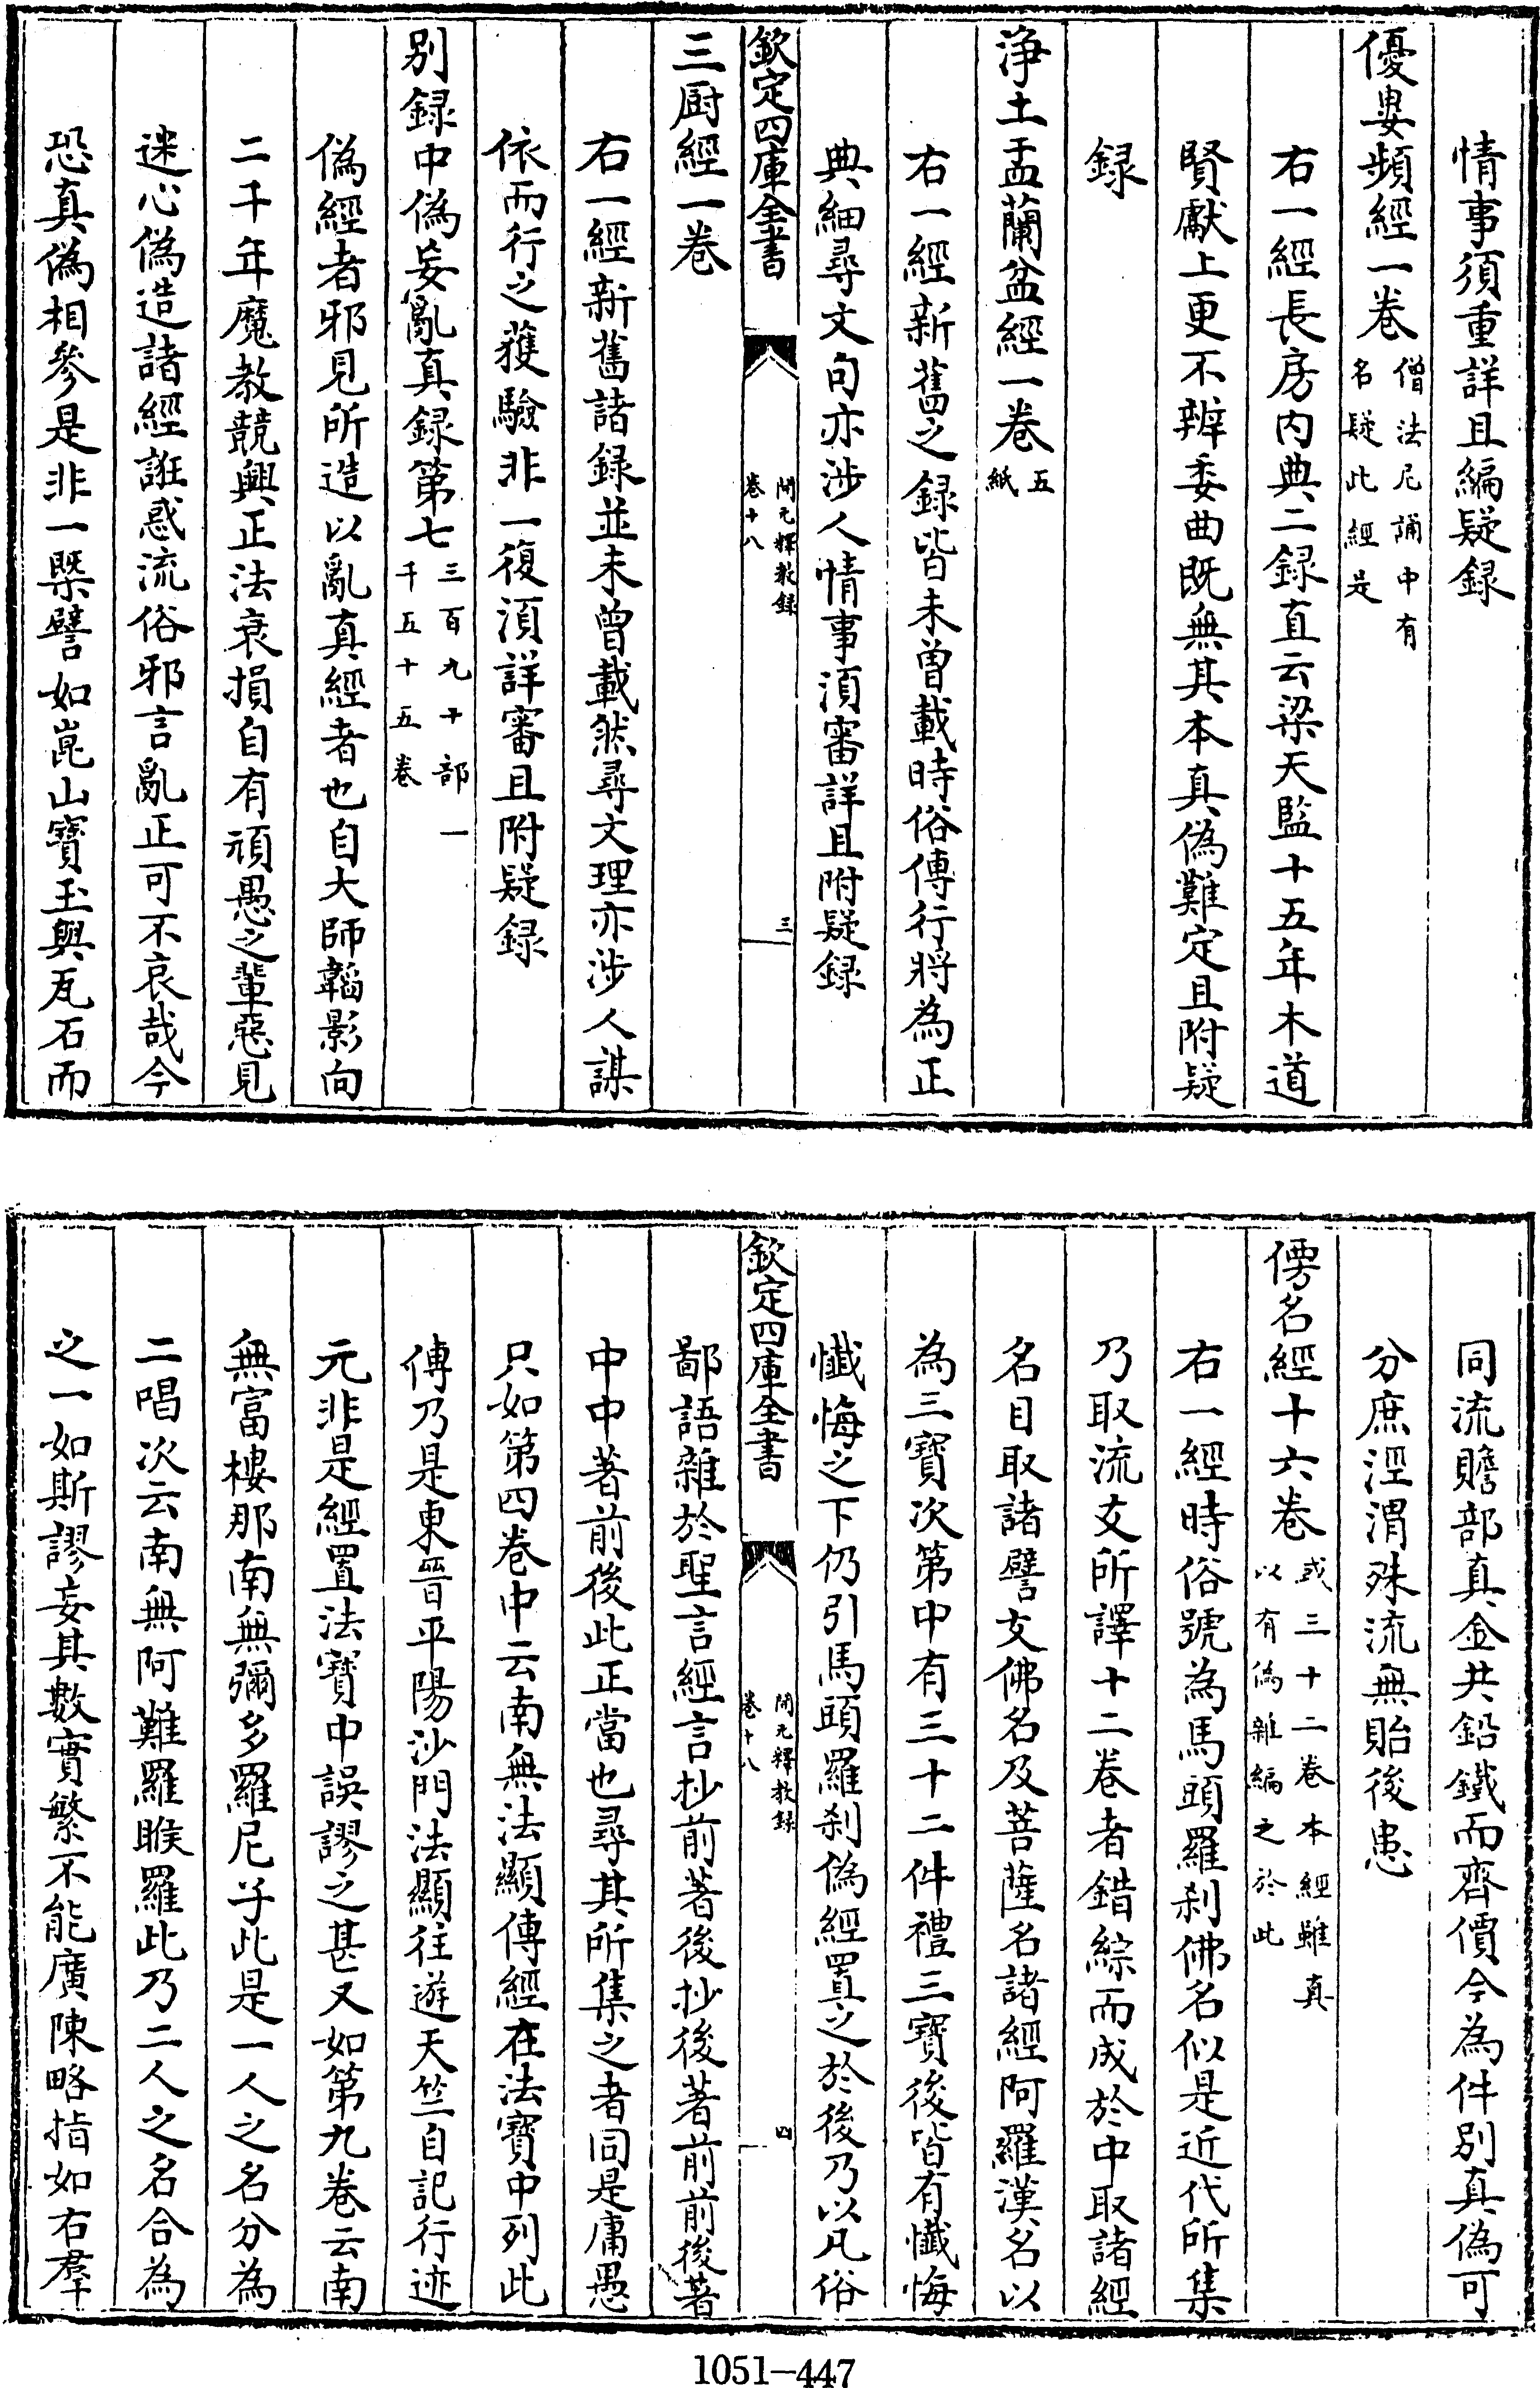 情事須重詳且編疑録
優婁頻經一卷僧法尼誦中有
名疑此經是
右一經長房内典二録直云梁天監十五年木道
賢獻上更不辨委曲既無其本真偽難定且附疑
録
淨土盂蘭盆經一卷五
紙
右一經新舊之録皆未曾載時俗傳行將為正
典細尋文句亦涉人情事須審詳且附疑録
欽定四庫全書
開元釋教録
卷十八
三
三厨經一卷
右一經新舊諸録並未曾載然尋文理亦涉人謀
依而行之獲驗非一復須詳審且附疑録
别録中偽妄亂真録第七三百九十部一
千五十五卷
偽經者邪見所造以亂真經者也自大師韜影向
二千年魔教競興正法衰損自有頑愚之輩惡見
迷心偽造諸經誑惑流俗邪言亂正可不哀哉今
恐真偽相參是非一槩譬如崑山寶玉與瓦石而
同流贍部真金共鉛鐵而齊價今為件别真偽可
分庶涇渭殊流無貽後患
傍名經十六卷或三十二卷本經雖真
以有偽雜編之於此
右一經時俗號為馬頭羅刹佛名似是近代所集
乃取流支所譯十二卷者錯綜而成於中取諸經
名目取諸譬支佛名及菩薩名諸經阿羅漢名以
為三寶次第中有三十二件禮三寶後皆有懺悔
懺悔之下仍引馬頭羅刹偽經置之於後乃以凡俗
欽定四庫全書
開元釋教録
卷十八
四
鄙語雜於聖言經言抄前著後抄後著前前後著
中中著前後此正當也尋其所集之者同是庸愚
只如第四卷中云南無法顯傳經在法寶中列此
傳乃是東晉平陽沙門法顯往遊天竺自記行迹
元非是經置法寶中誤謬之甚又如第九卷云南
無富樓那南無彌多羅尼子此是一人之名分為
二唱次云南無阿難羅睺羅此乃二人之名合為
之一如斯謬妄其數實繁不能廣陳略指如右羣
1051-447